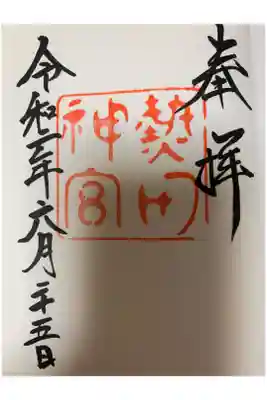 奉拝
熱田神宮
令和二年六月二十五日